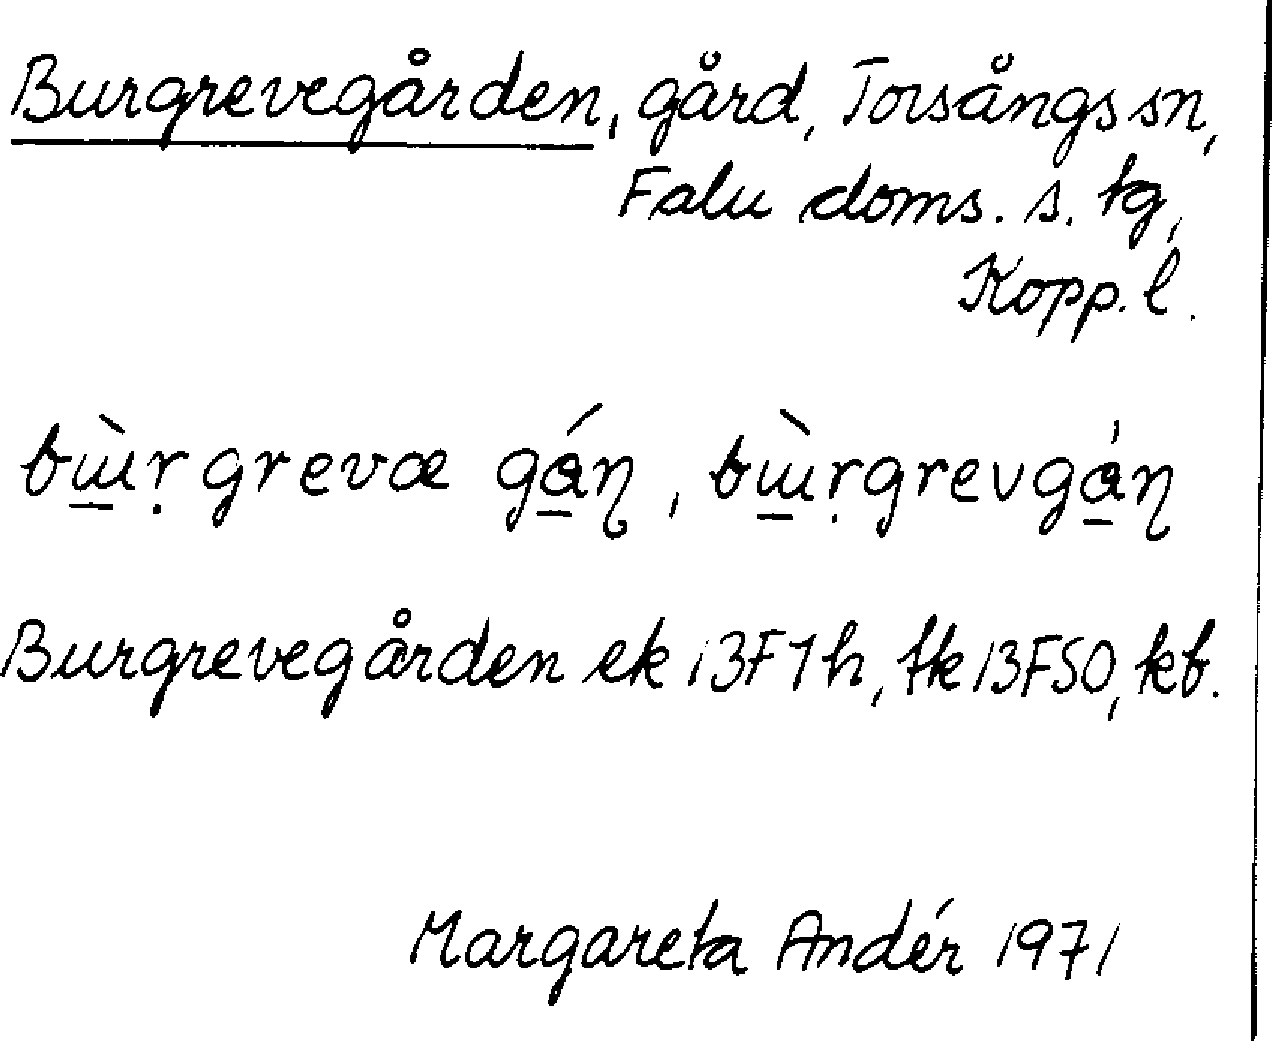 Burgrevegården, gård, Torsångs sn,
Falu doms. s. tg,
Kopp. l.
bɯ̱̀ṛgrevæ gá̱ɳ, bɯ̱̀ṛgrevgá̱ɳ
Burgrevegården ek 13F7h, fk 13FSO, kb.
Margareta Andér 1971